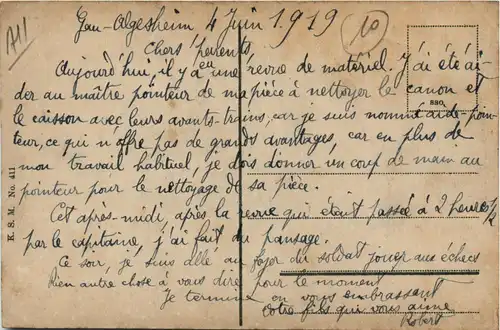 A11
Gau-Algesheim 4 Juin 1919
10
Chers parents,
Aujourd'hui, il y a eu une revue de matériel. J'ai été ai-
der au maître pointeur de ma pièce à nettoyer le canon et
le caisson avec leurs avants-trains, car je suis nommé aide-poin-
teur, ce qui n'offre pas de grands avantages, car en plus de
mon travail habituel, je dois donner un coup de main au
pointeur pour le nettoyage de sa pièce.
Cet après-midi, après la revue qui était passée à 2 heures 1/2
par le capitaine, j'ai fait du pansage.
Ce soir, je suis allé au foyer du soldat jouer aux échecs
Rien autre chose à vous dire pour le moment
Je termine en vous embrassant
Votre fils qui vous aime
Robert
K. S. M. No. 411
880